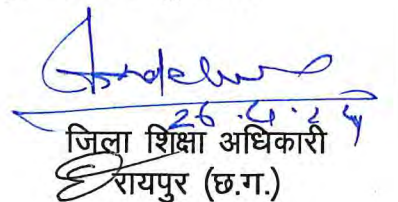 26.4.24
जिला शिक्षा अधिकारी
रायपुर (छ.ग.)